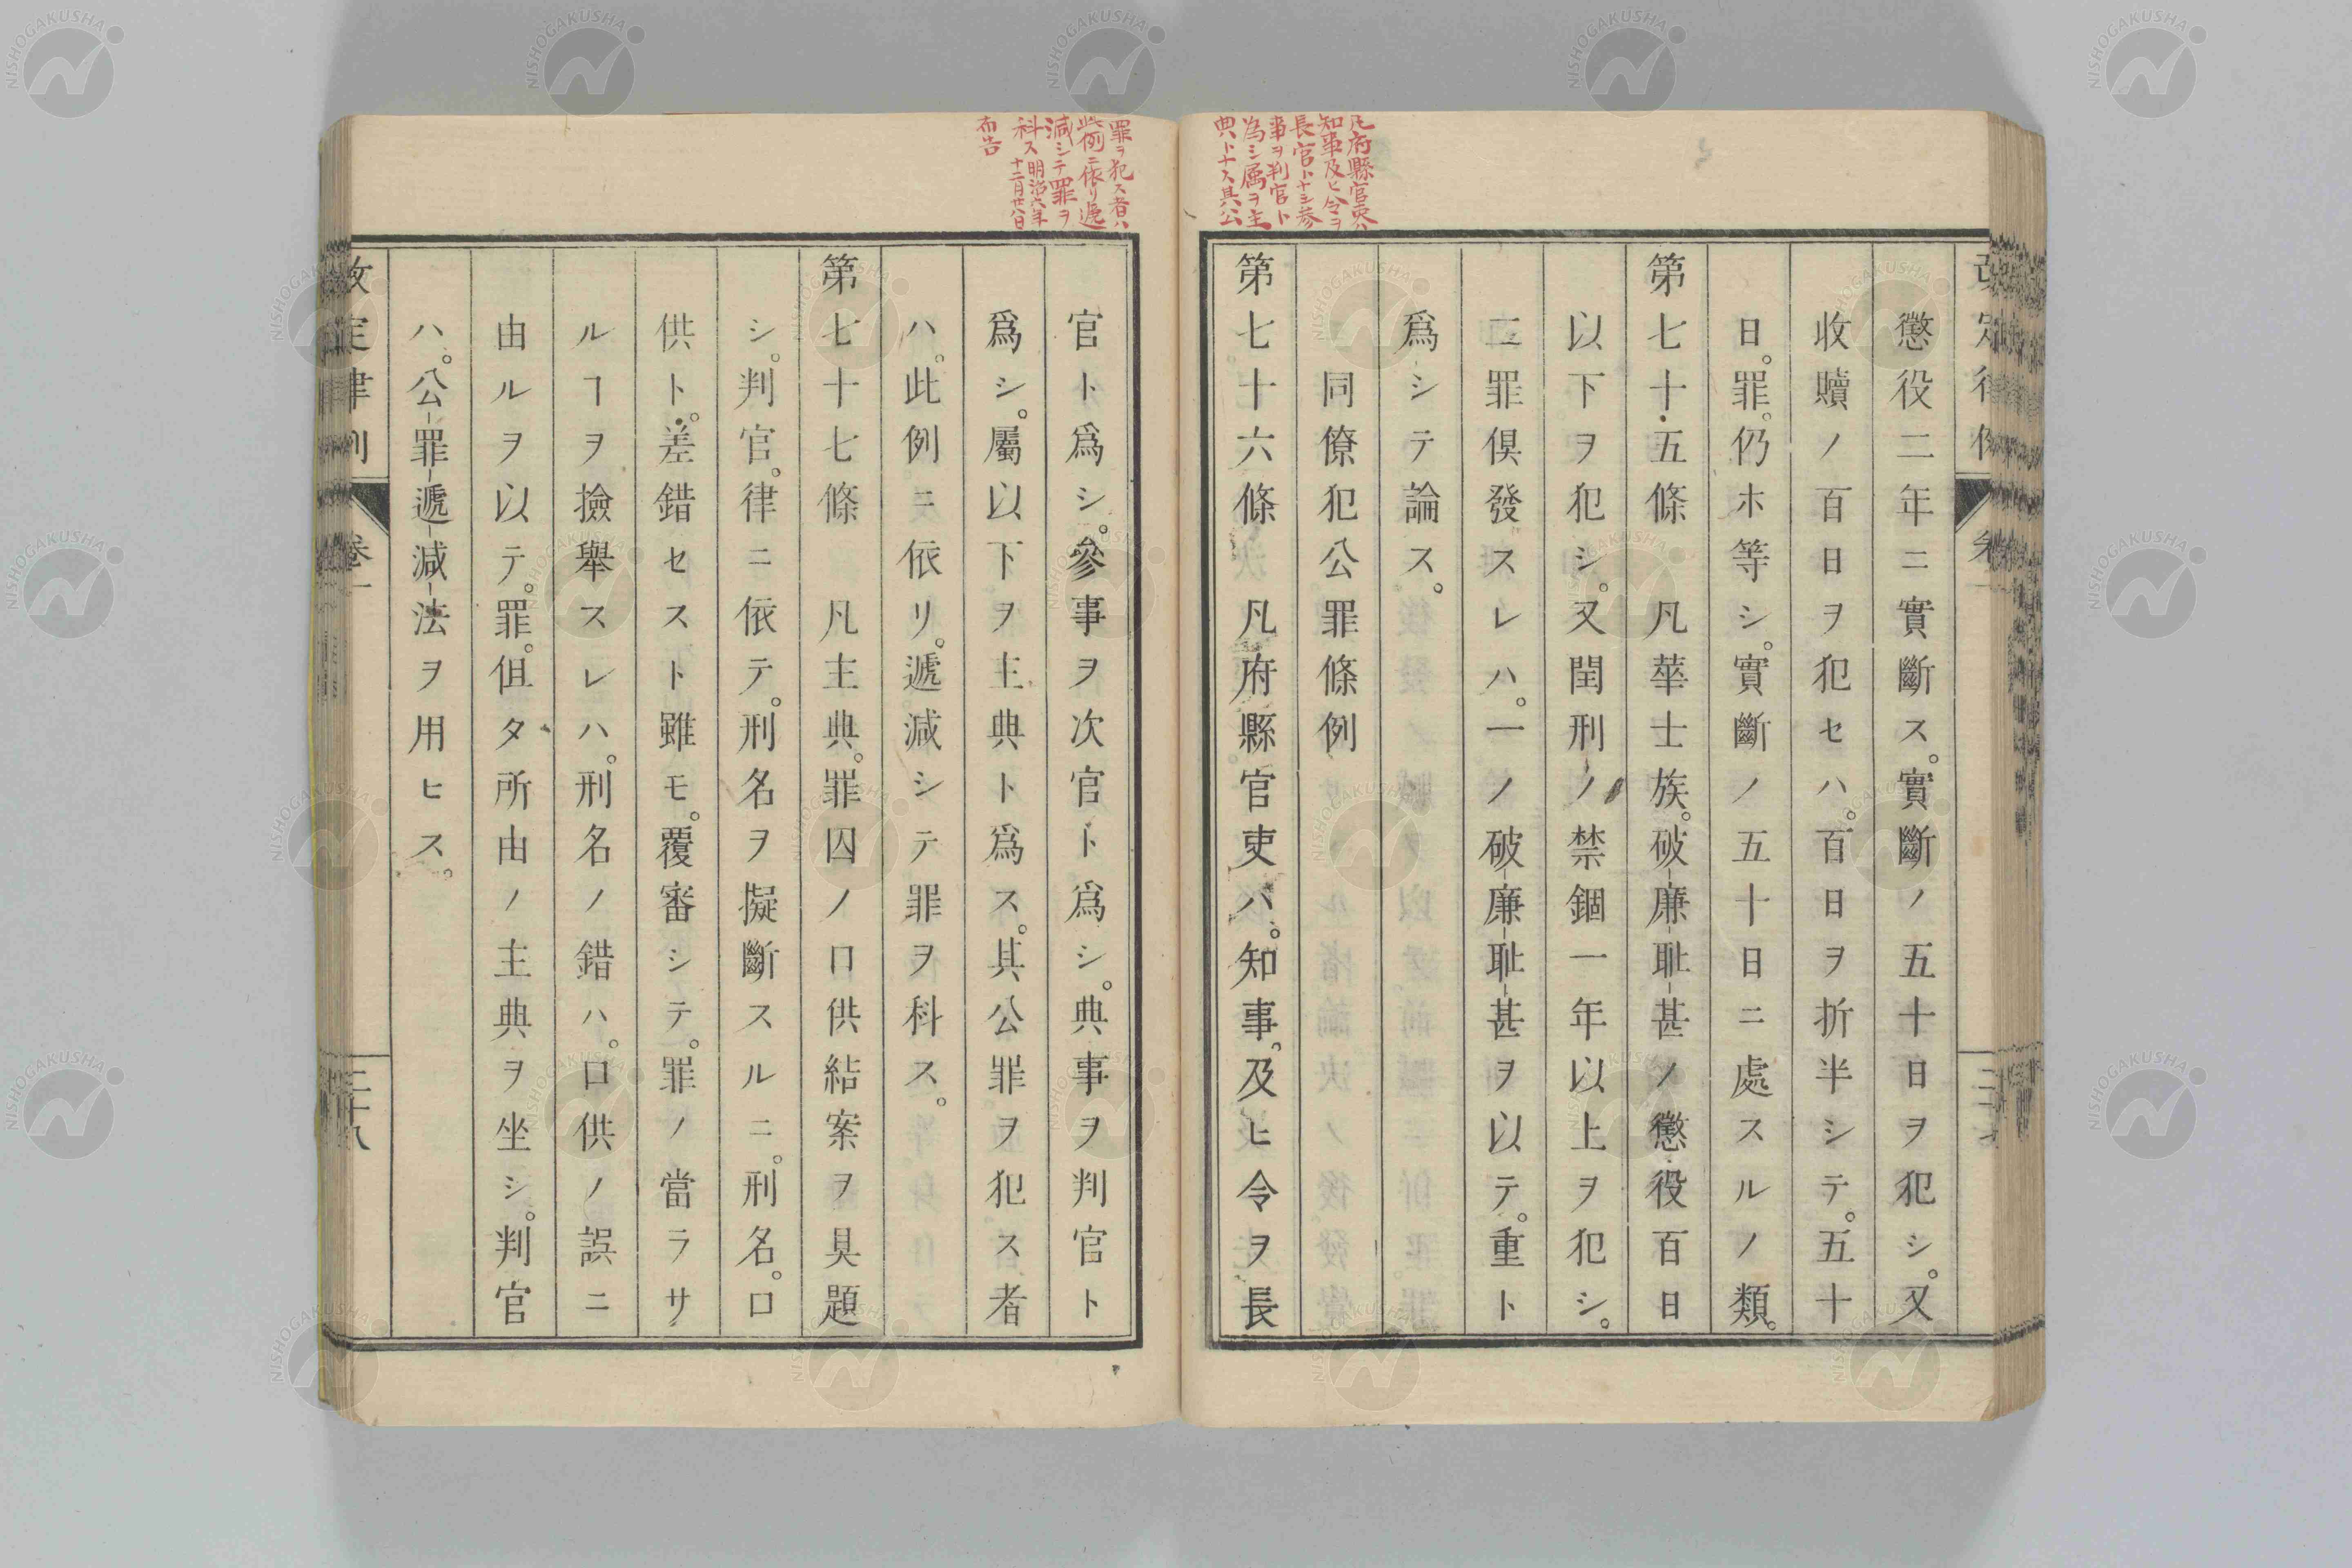 凡府縣官吏ハ
知事及ヒ令ヲ
長官ト十シ参
事ヲ判官ト
為シ属ヲ主
典ト十ス其公
懲役二年ニ實斷ス。實斷ノ五十日ヲ犯シ。又
收贖ノ百日ヲ犯セハ。百日ヲ折半シテ。五十
日。罪。仍ホ等シ。實斷ノ五十日ニ處スルノ類。
第七十五條 凡華士族。破廉耻甚ノ懲役百日
以下ヲ犯シ。又閏刑ノ禁錮一年以上ヲ犯シ。
二罪倶發スレハ。一ノ破廉耻甚ヲ以テ。重ト
爲シテ論ス。
同僚犯公罪條例
第七十六條 凡府縣官吏ハ。知事。及ヒ令ヲ長
罪ヲ犯ス者ハ
此例ニ依リ遞
減シテ罪ヲ
科ス 明治六年
十二月廿八日
布告
官ト爲シ。參事ヲ次官ト爲シ。典事ヲ判官ト
爲シ。屬以下ヲ主典ト爲ス。其公罪ヲ犯ス者
ハ。此例ニ依リ。遞減シテ罪ヲ科ス。
第七十七條 凡主典。罪囚ノ口供結案ヲ具題
シ。判官。律ニ依テ。刑名ヲ擬斷スルニ。刑名。口
供ト。差錯セスト雖モ。覆審シテ。罪ノ當ラサ
ルヿヲ撿舉スレハ。刑名ノ錯ハ。口供ノ誤ニ
由ルヲ以テ。罪。但タ所由ノ主典ヲ坐シ。判官
ハ。公罪遞減法ヲ用ヒス。
改定律例 卷一 三十八